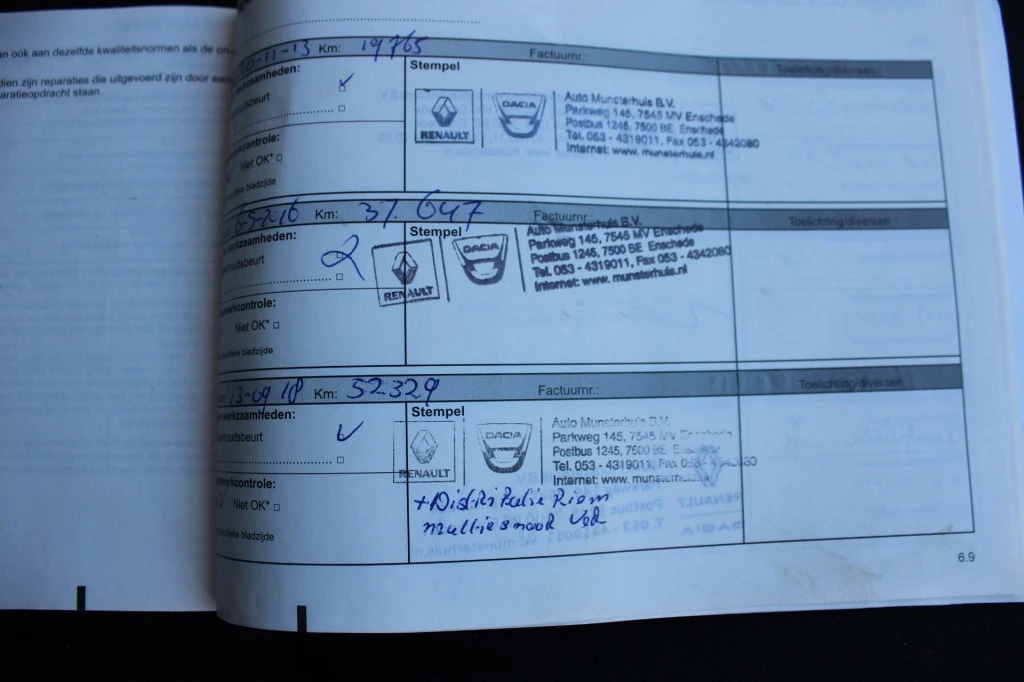 an ook aan dezelfde kwaliteitsnormen als de on
dien zijn reparaties die uitgevoerd zijn door een
aratieopdracht staan.
10-11-13 Km: 19765 Factuurnr.: Toelichting/diversen
werkzaamheden:
Stempel
houdsbeurt
RENAULT
DACIA
Auto Munsterhuis B.V.
Parkweg 145, 7545 MV Enschede
Postbus 1245, 7500 BE Enschede
Tel. 053 - 4319011, Fax 053 - 4342080
Internet: www. munsterhuis.nl
rkcontrole:
Niet OK*
bladzijde
Km: 37.647 Factuurnr.: Toelichting/diversen
werkzaamheden:
Stempel
houdsbeurt
RENAULT
DACIA
Auto Munsterhuis B.V.
Parkweg 145, 7545 MV Enschede
Postbus 1245, 7500 BE Enschede
Tel. 053 - 4319011, Fax 053 - 4342080
Internet: www. munsterhuis.nl
werkcontrole:
Niet OK*
bladzijde
13-09 18 Km: 52329 Factuurnr.: Toelichting/diversen
werkzaamheden:
Stempel
houdsbeurt
RENAULT
DACIA
Auto Munsterhuis B.V.
Parkweg 145, 7545 MV Enschede
Postbus 1245, 7500 BE Enschede
Tel. 053 - 4319011, Fax 053 - 4342080
Internet: www. munsterhuis.nl
werkcontrole:
Niet OK*
bladzijde
+ Distributie Riem
6.9